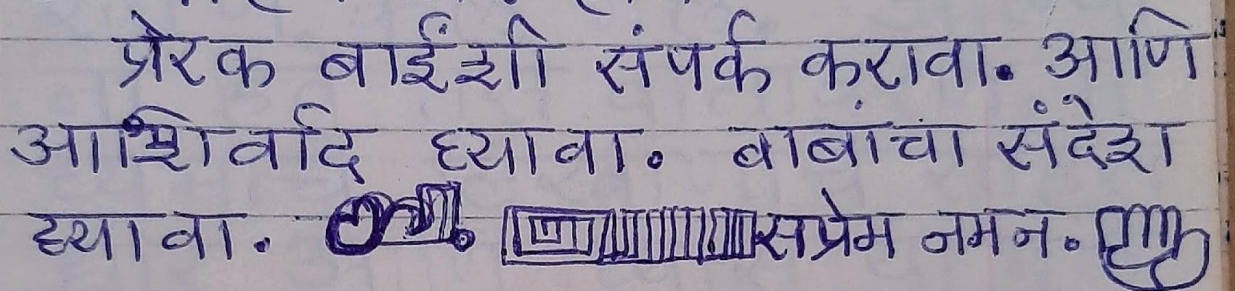 प्रेरक बाईंशी संपर्क करावा. आणि
आशिर्वाद घ्यावा. बाबांचा संदेश
घ्यावा. सप्रेम नमन.